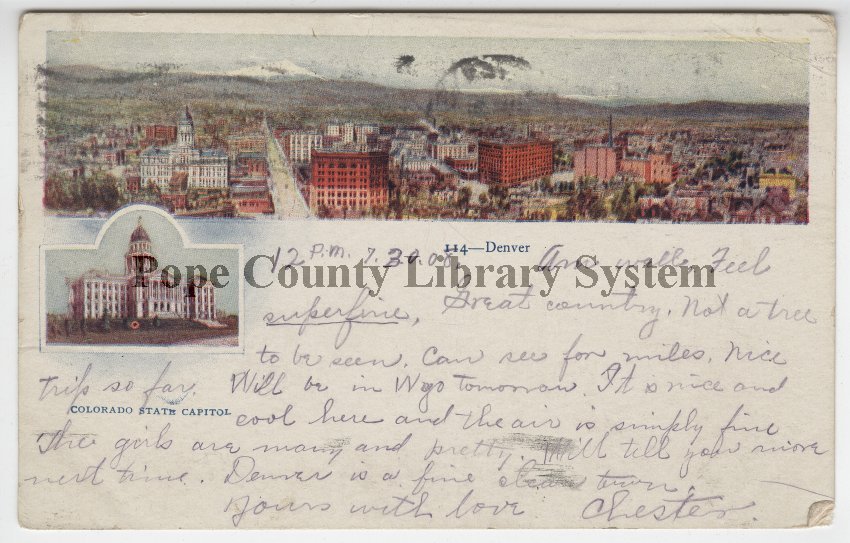 114—Denver
12 P.M. 7.30.05. Am well. Feel
Pope County Library System
superfine, Great country. Not a tree
to be seen. Can see for miles. Nice
trip so far. Will be in Wyo tomorrow. It is nice and
COLORADO STATE CAPITOL
cool here and the air is simply fine
The girls are many and pretty. Will tell you more
next time. Denver is a fine clean town.
Yours with love Chester.